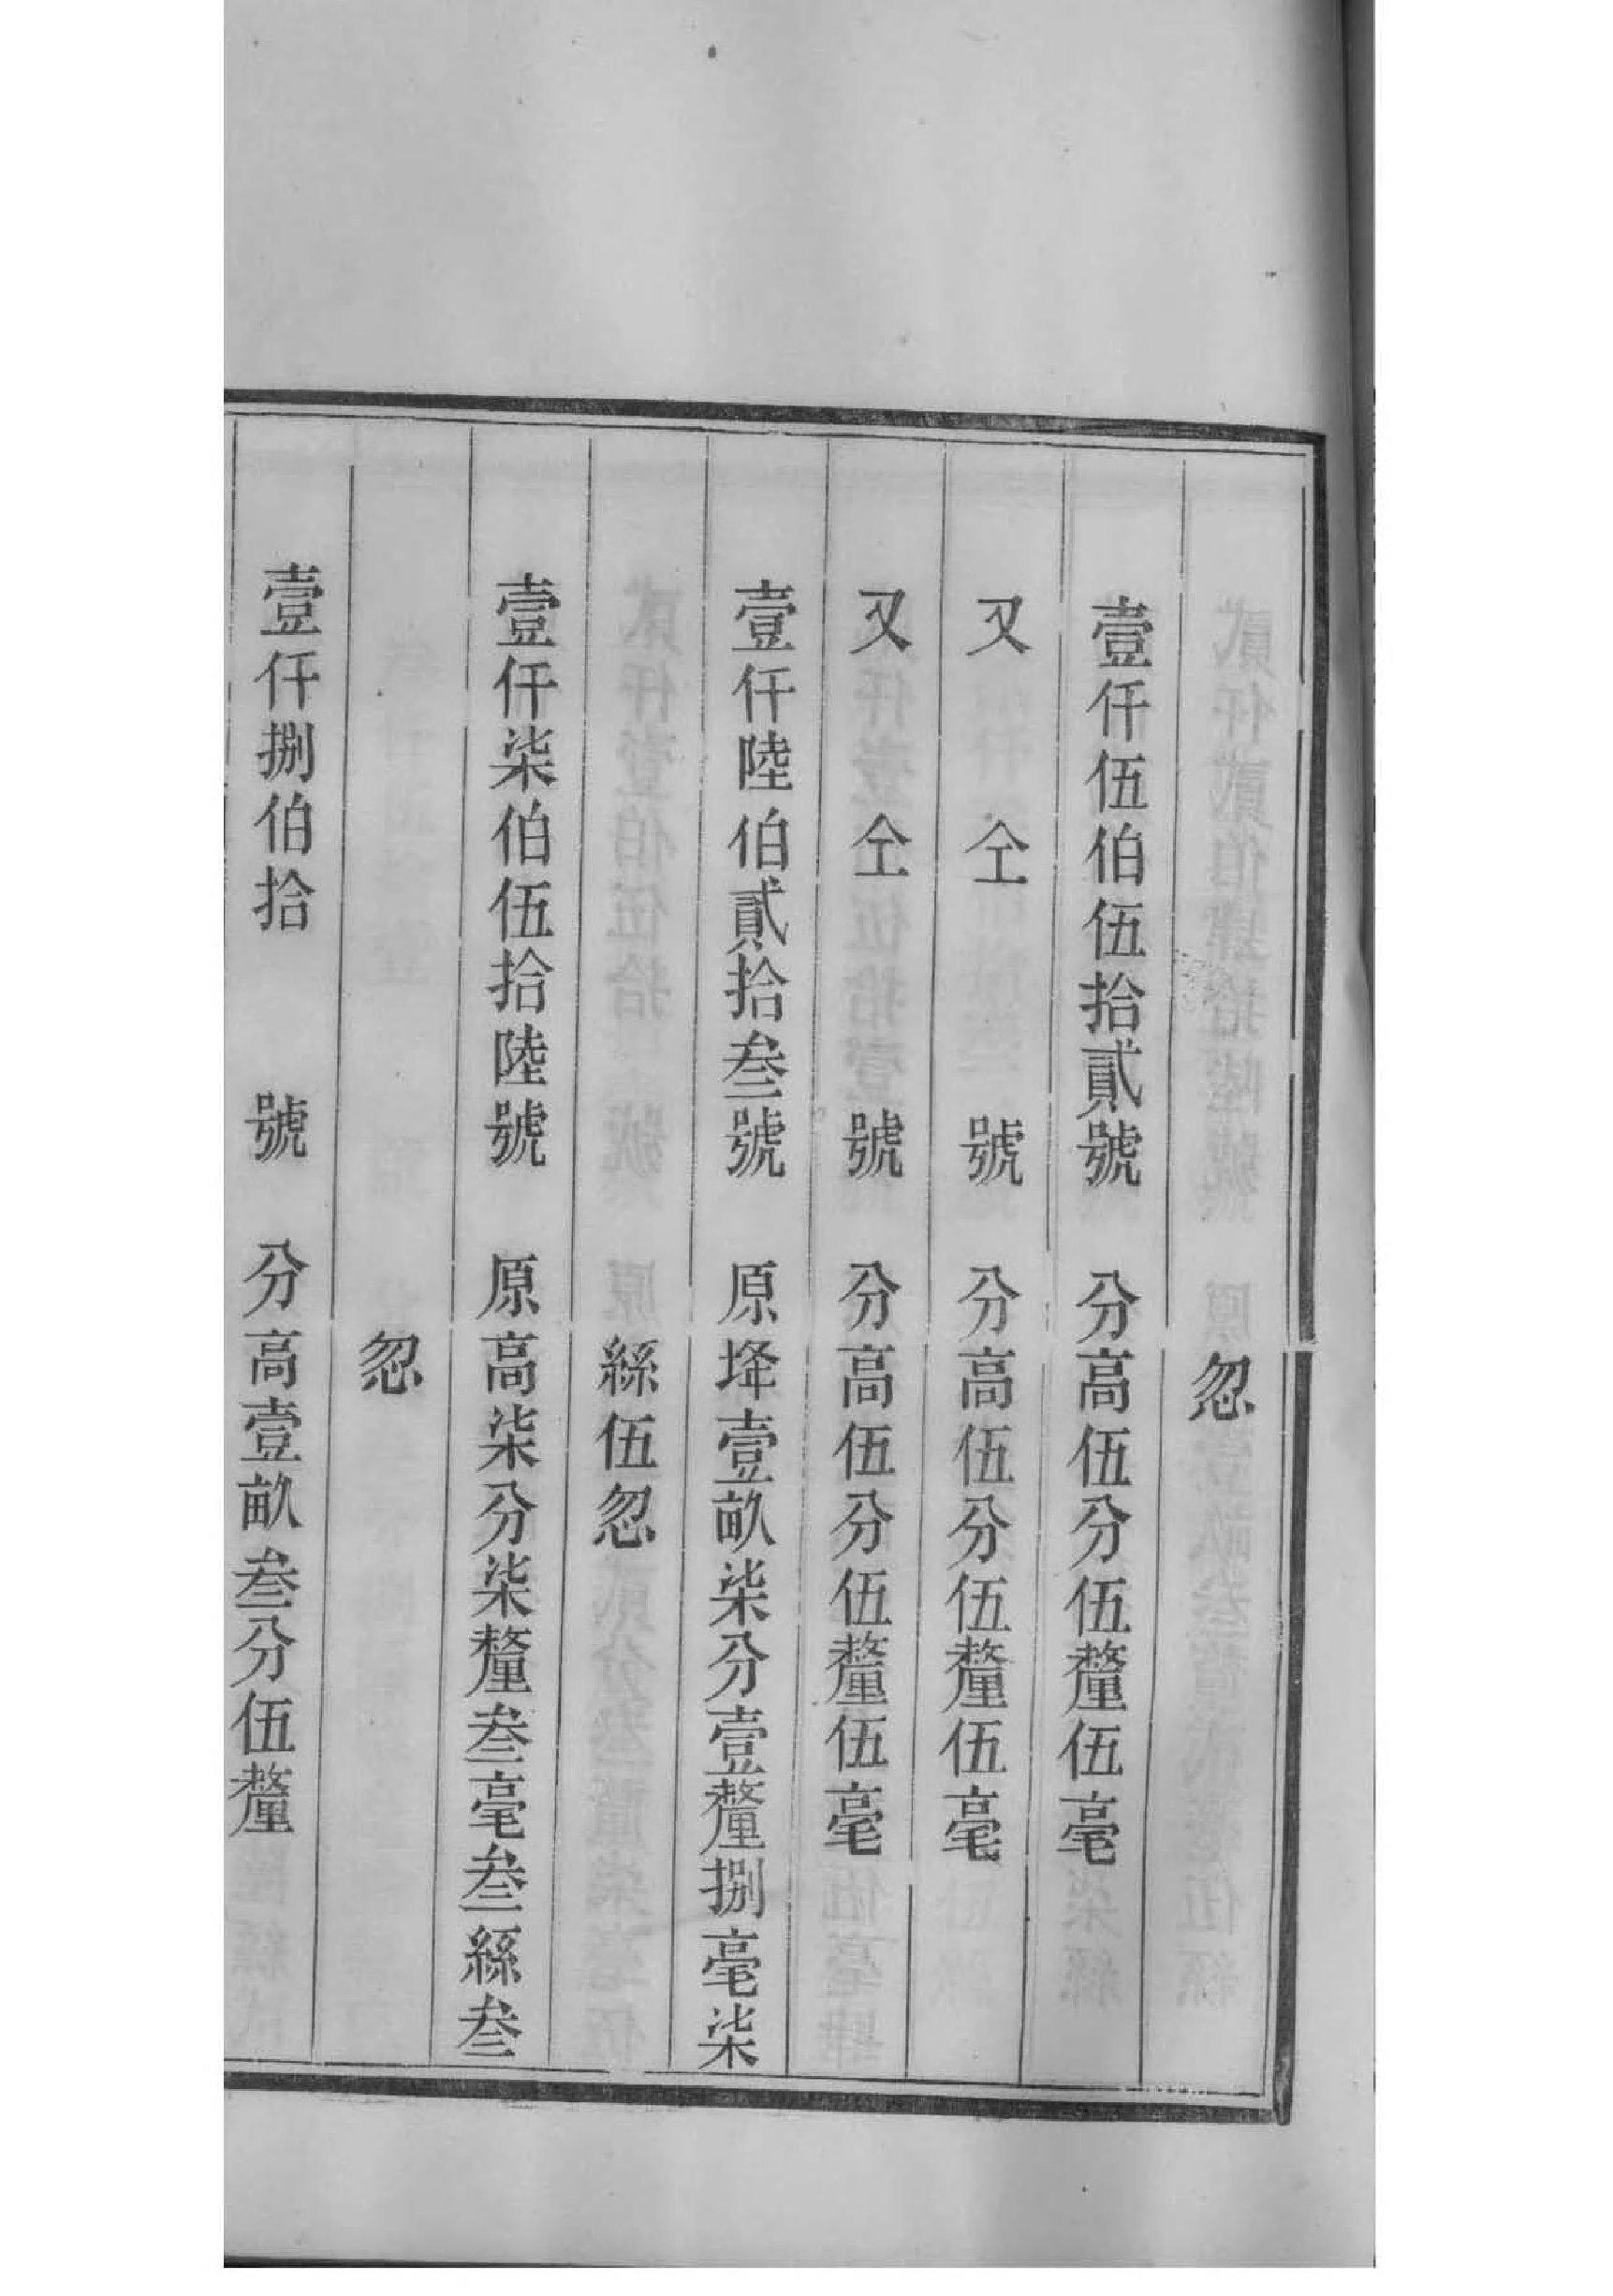 忽
壹仟伍伯伍拾貳號 分高伍分伍釐伍毫
又仝號 分高伍分伍釐伍毫
又仝號 分高伍分伍釐伍毫
壹仟陸伯貳拾叁號 原垾壹畝柒分壹釐捌毫柒
絲伍忽
壹仟柒伯伍拾陸號 原高柒分柒釐叁毫叁絲叁
忽
壹仟捌伯拾號 分高壹畝叁分伍釐